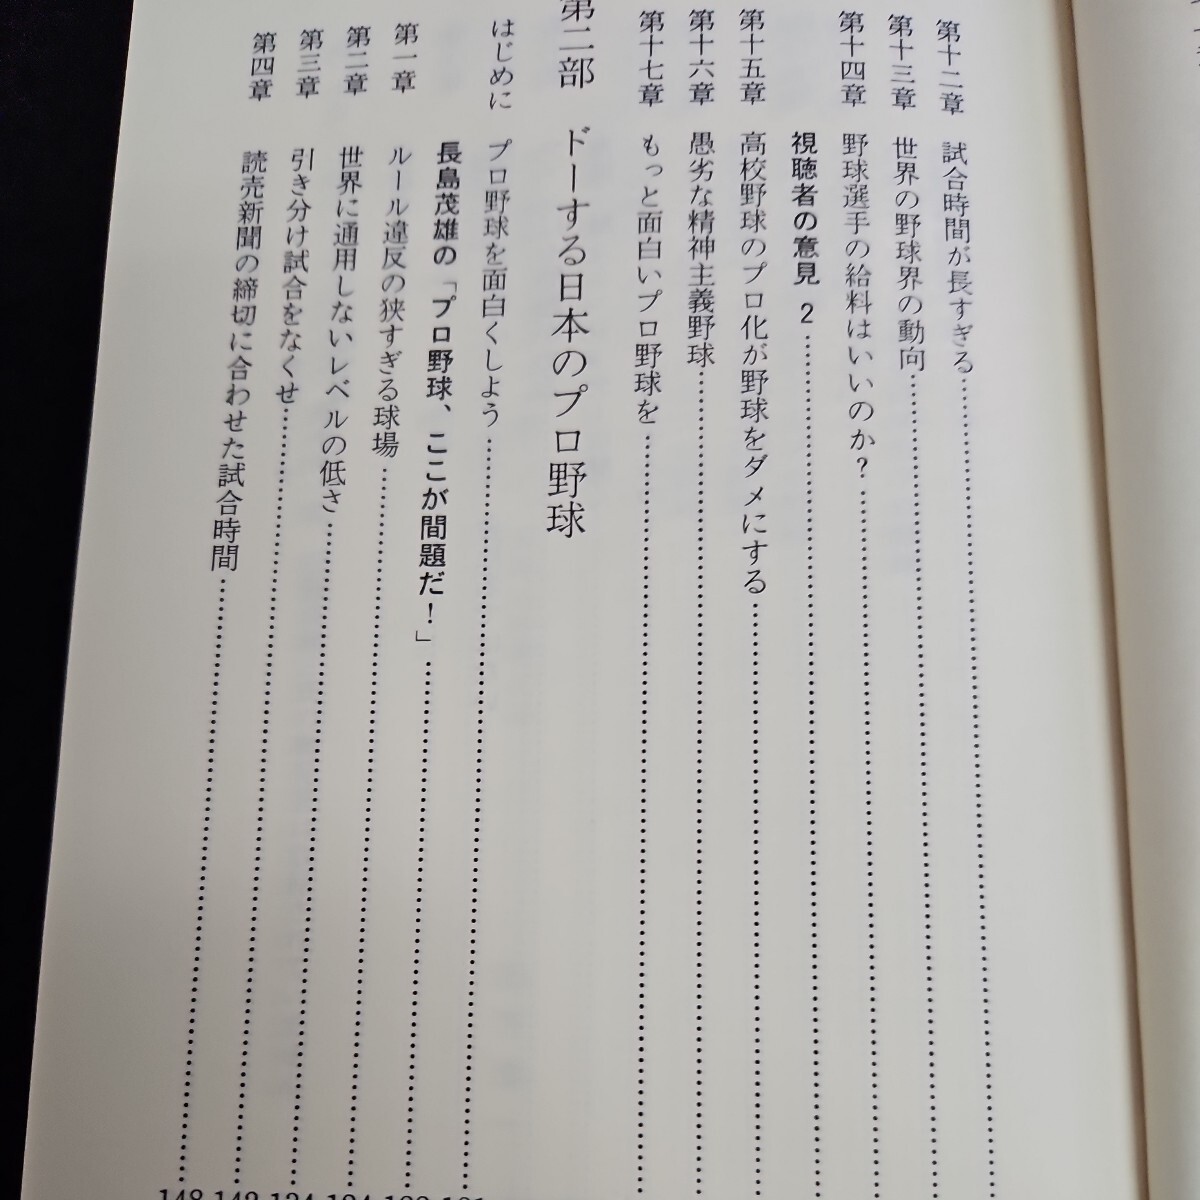 第十二章 試合時間が長すぎる
第十三章 世界の野球界の動向
第十四章 野球選手の給料はいいのか?
視聴者の意見 2
第十五章 高校野球のプロ化が野球をダメにする
第十六章 愚劣な精神主義野球
第十七章 もっと面白いプロ野球を
第二部 ドーする日本のプロ野球
はじめに プロ野球を面白くしよう
長島茂雄の「プロ野球、ここが問題だ!」
第一章 ルール違反の狭すぎる球場
第二章 世界に通用しないレベルの低さ
第三章 引き分け試合をなくせ
第四章 読売新聞の締切に合わせた試合時間